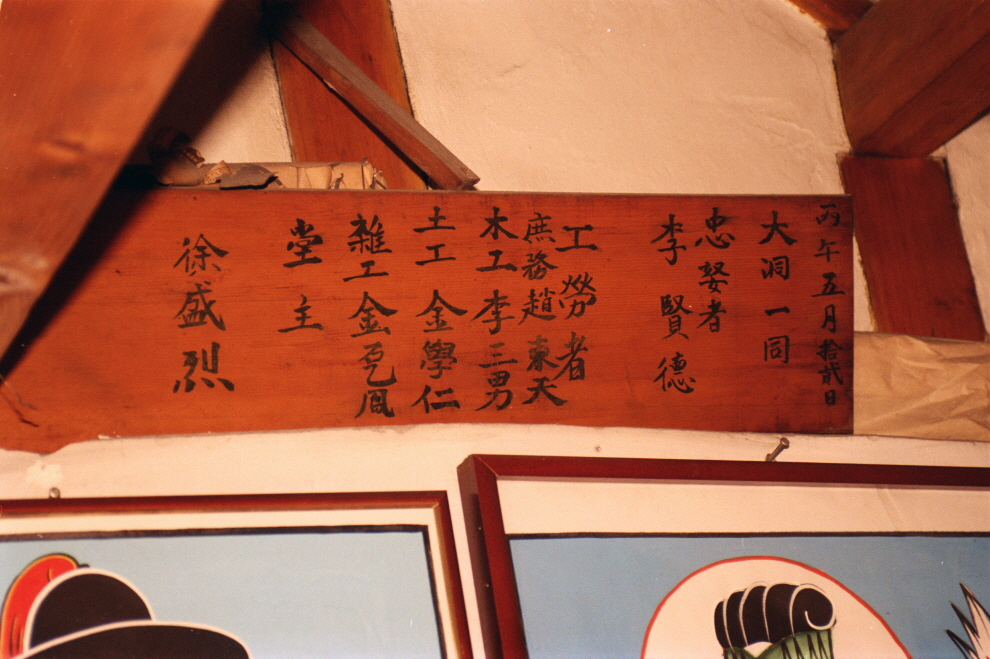 丙午五月拾貳日
大洞一同
忠娶者
李賢德
工勞者
庶務趙東天
木工李三男
土工金學仁
雜工金
堂主
徐盛烈